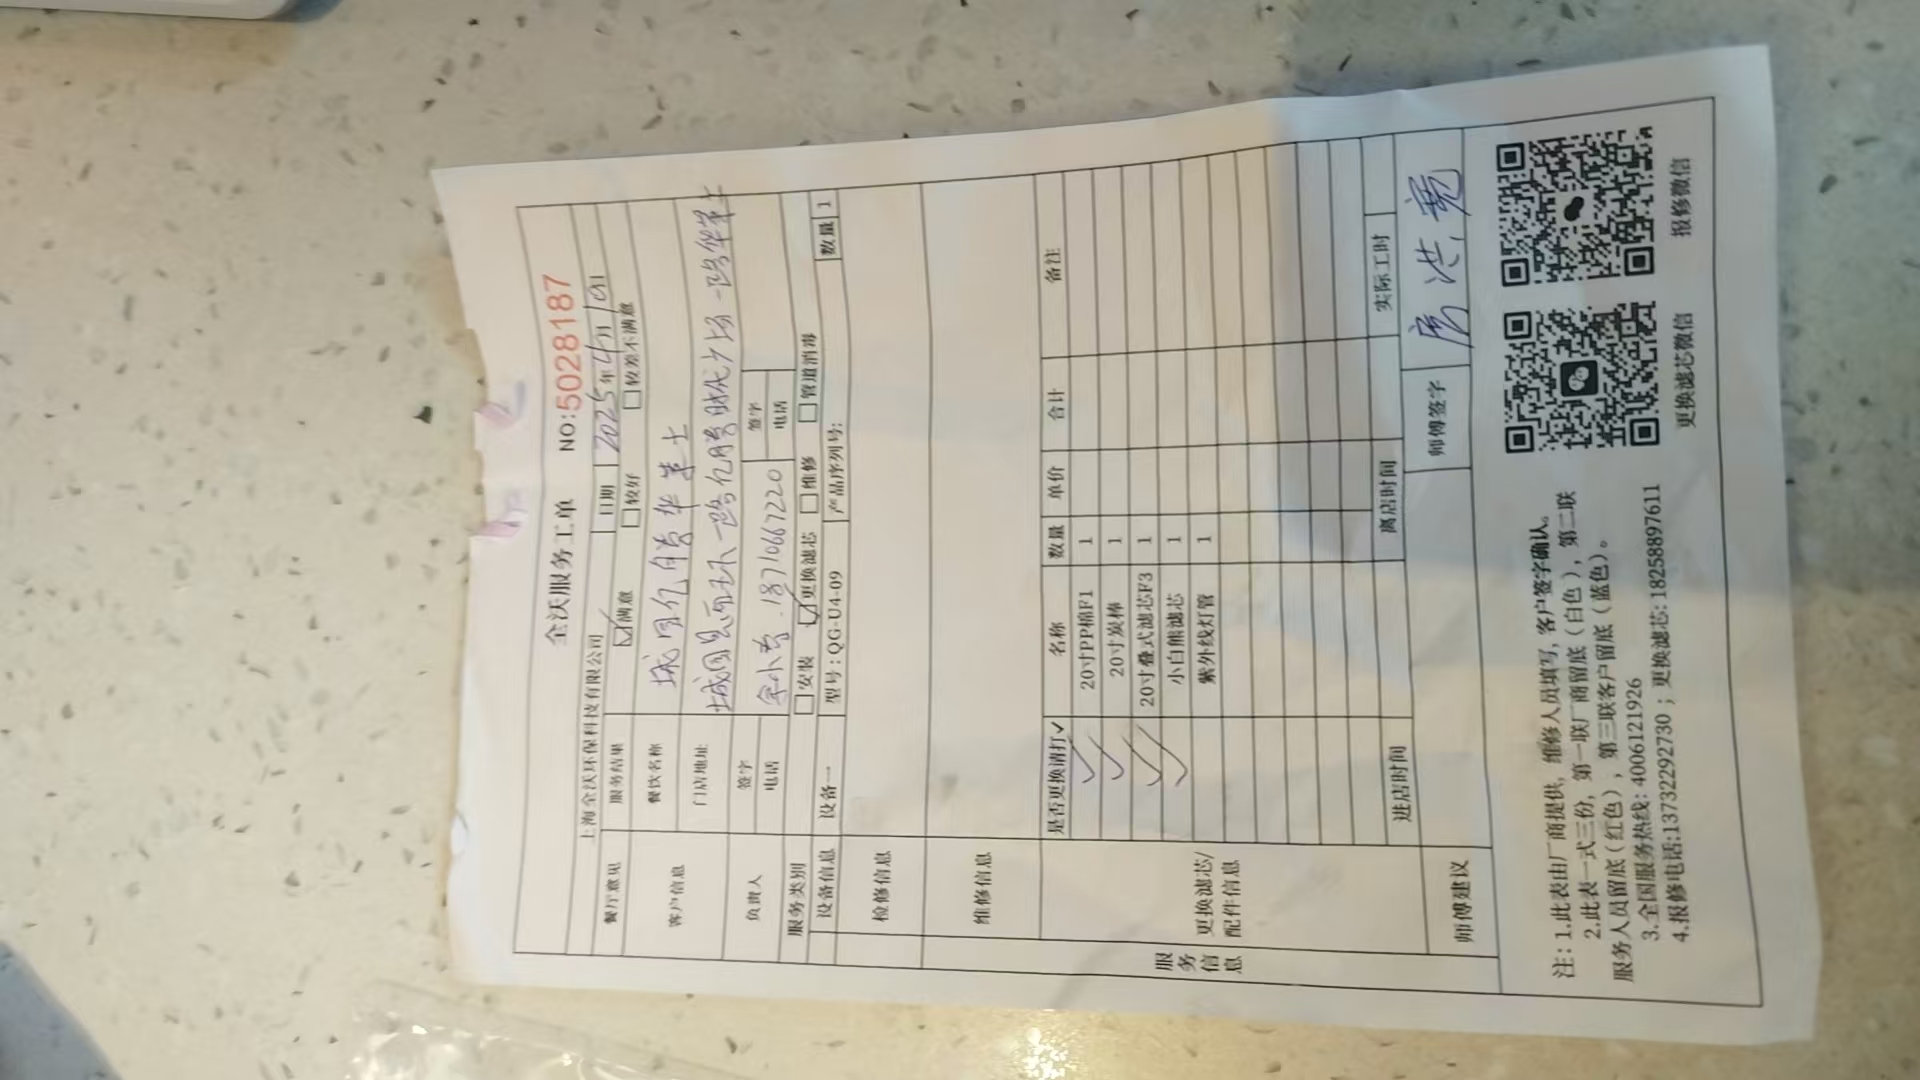 全沃服务工单 NO:5028187
上海全沃环保科技有限公司 日期 2025年4月
餐厅意见 服务结果 ☑满意 ☐较好 ☐较差不满意
客户信息 餐饮名称 城固亿 华莱士
门店地址 城固县 一路 时代广场一路华莱士
负责人 签字 余小 签字
电话 18710667220 电话
服务类别 ☐安装 ☑更换滤芯 ☐维修 ☐管道消毒
设备信息 设备一 型号:QG-U4-09 产品序列号: 数量 1
检修信息
维修信息
服务信息
更换滤芯/配件信息
是否更换请打✓ 名称 数量 单价 合计 备注
✓ 20寸PP棉F1 1
✓ 20寸炭棒 1
✓ 20寸叠式滤芯F3 1
✓ 小白熊滤芯 1
紫外线灯管 1
进店时间 离店时间 实际工时
师傅建议 师傅签字 洪
注:1.此表由厂商提供,维修人员填写,客户签字确认。
2.此表一式三份,第一联厂商留底(白色),第二联
服务人员留底(红色),第三联客户留底(蓝色)。
3.全国服务热线:4006121926
4.报修电话:13732292730;更换滤芯:18258897611
更换滤芯微信 报修微信